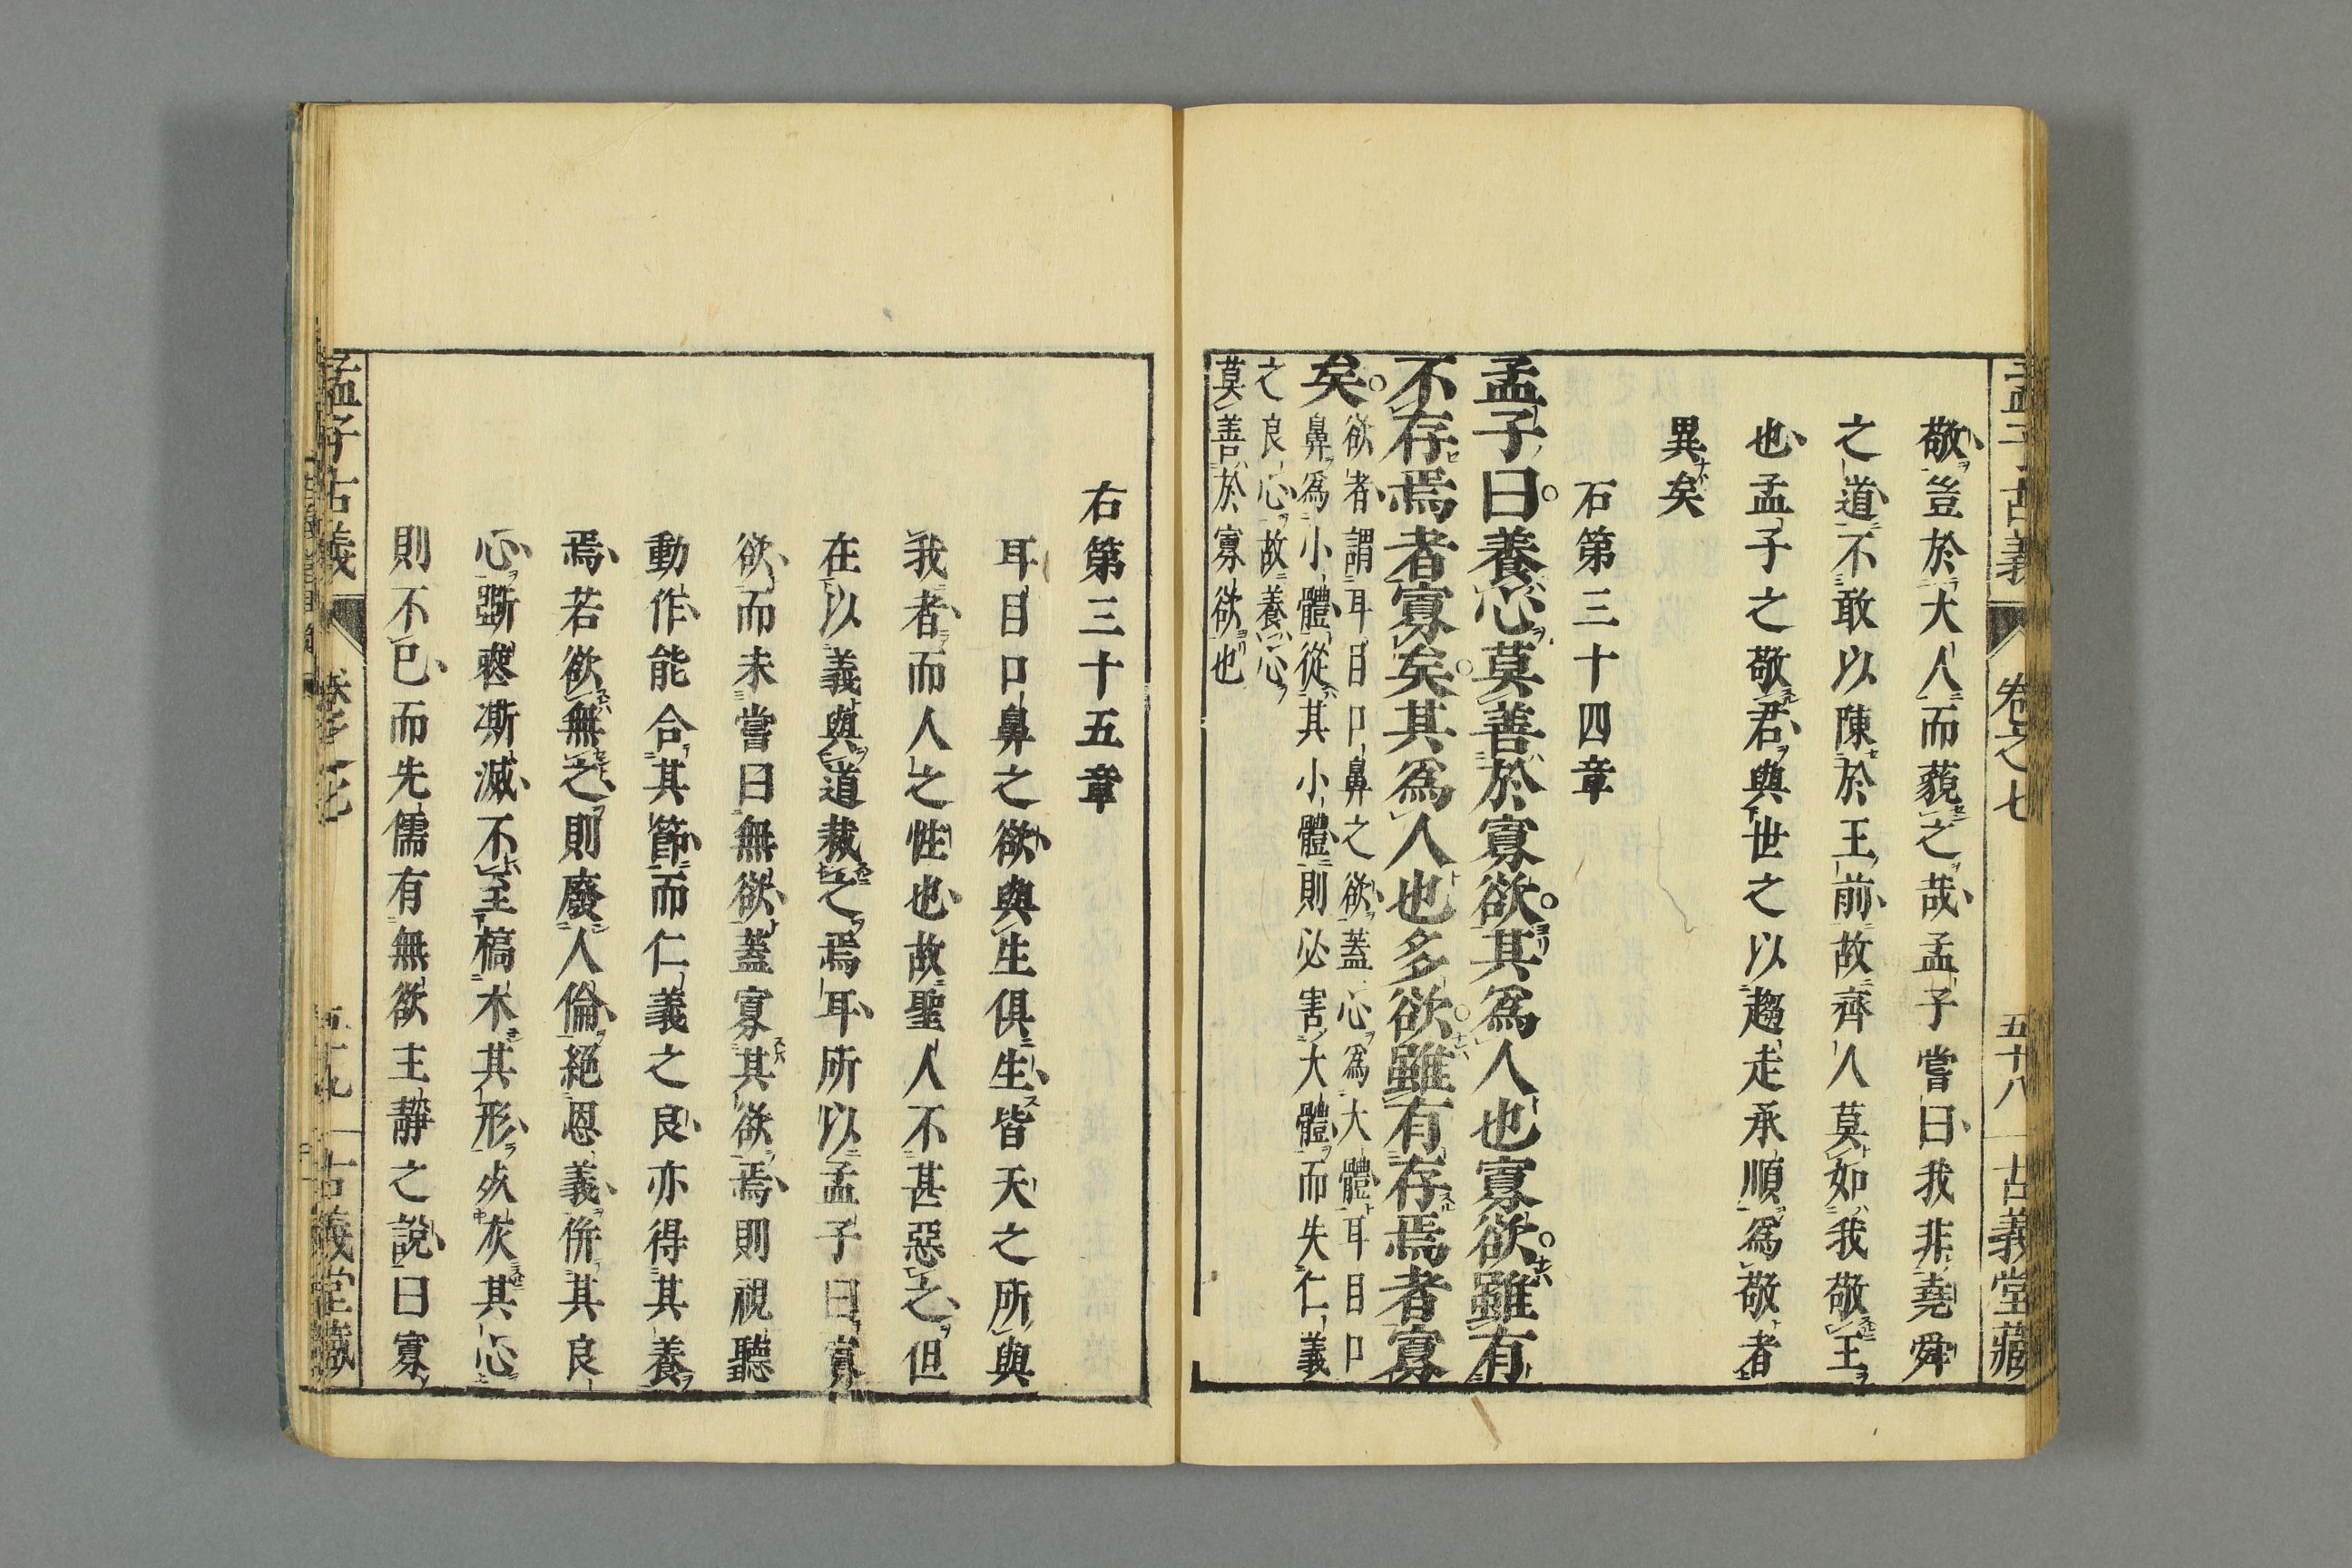 孟子古義 卷之七 五十八 古義堂藏
敬豈於大人而藐之哉孟子嘗曰我非堯舜
之道不敢以陳於王前故齊人莫如我敬王
也孟子之敬君與世之以趨走承順爲敬者
異矣
右第三十四章
孟子曰養心莫善於寡欲其爲人也寡欲雖有
不存焉者寡矣其爲人也多欲雖有存焉者寡
矣
欲者謂耳目口鼻之欲蓋心爲大體耳目口
鼻爲小體從其小體則必害大體而失仁義
之良心故養心
莫善於寡欲也
右第三十五章
耳目口鼻之欲與生俱生皆天之所與
我者而人之性也故聖人不甚惡之但
在以義與道裁之焉耳所以孟子曰寡
欲而未嘗曰無欲蓋寡其欲焉則視聽
動作能合其節而仁義之良亦得其養
焉若欲無之則廢人倫絕恩義併其良
心斲喪澌滅不至槁木其形死灰其心
則不已而先儒有無欲主靜之說曰寡
孟子古義 卷之七 五十九 古義堂藏